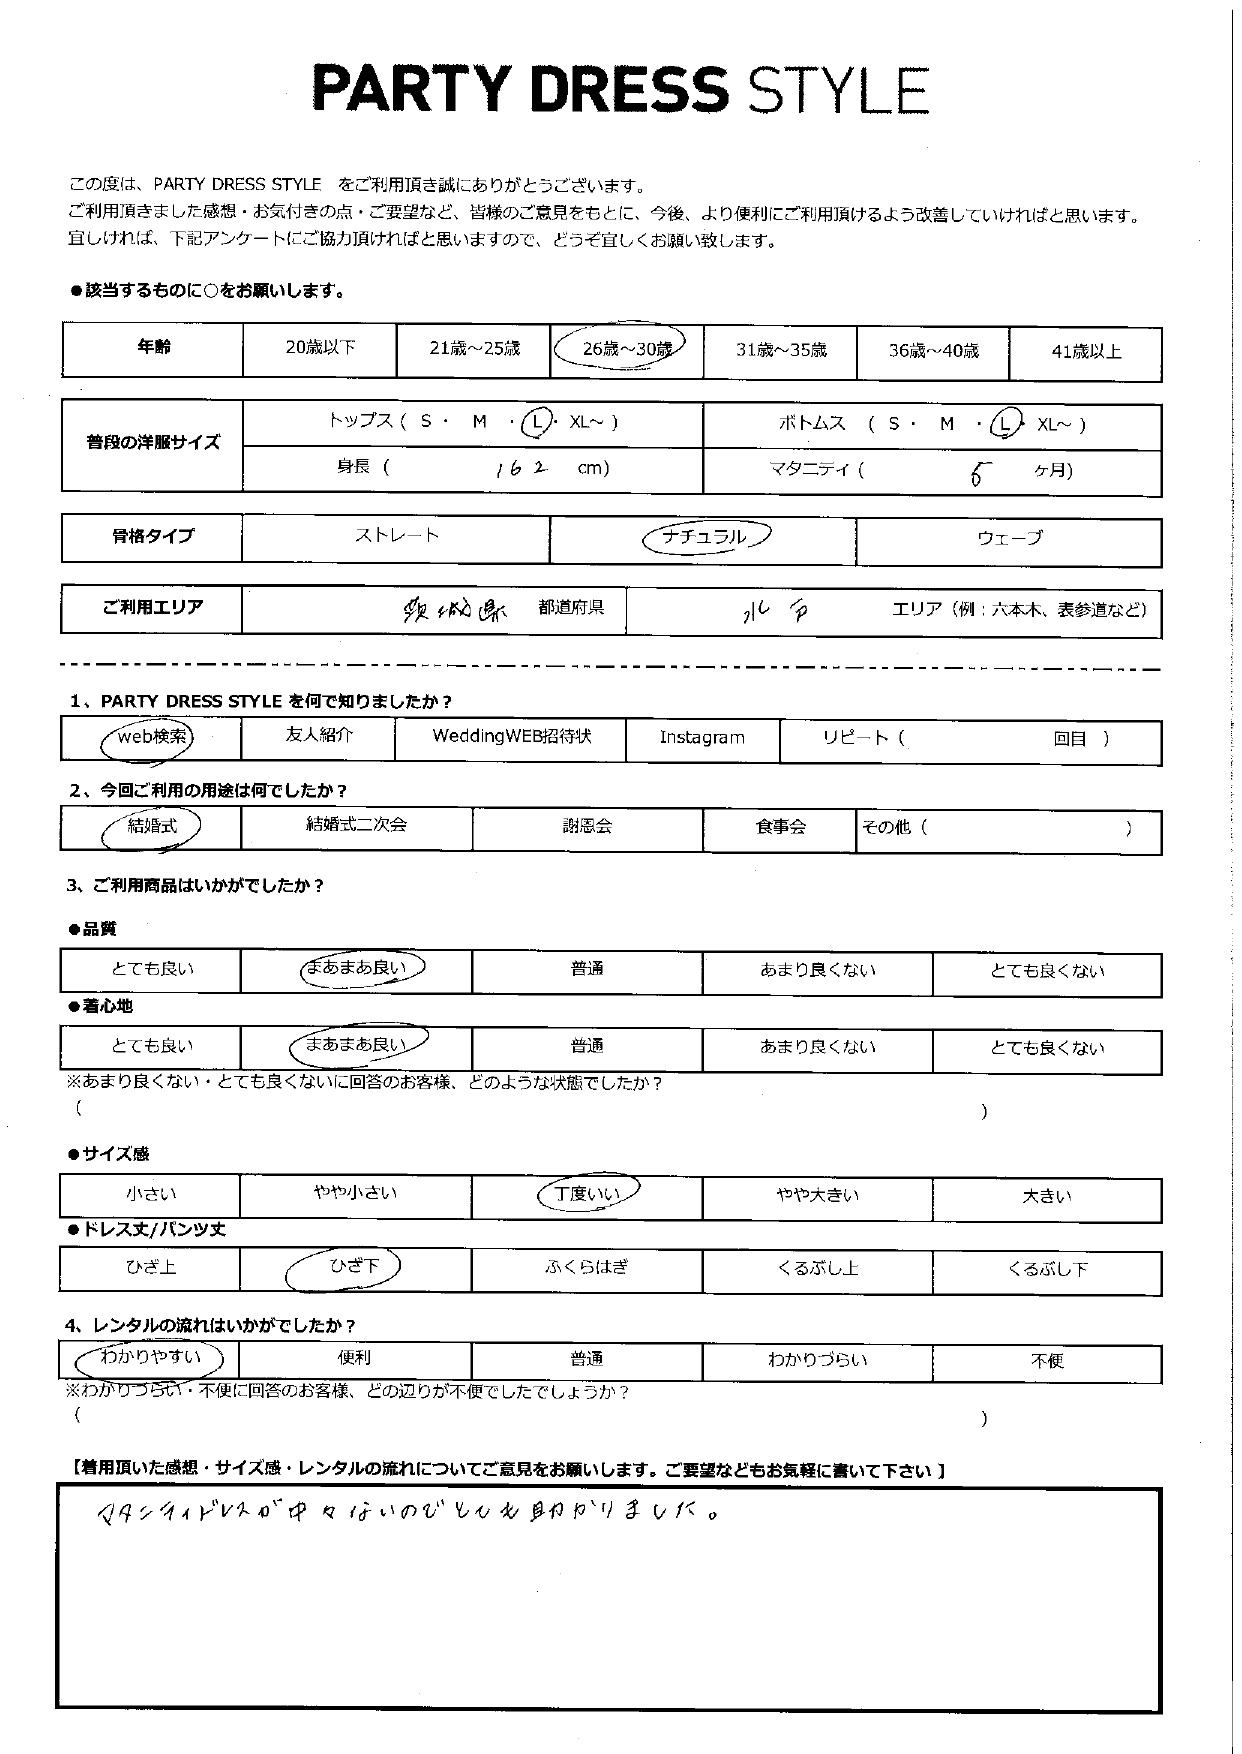 PARTY DRESS STYLE
この度は、PARTY DRESS STYLE をご利用頂き誠にありがとうございます。
ご利用頂きました感想・お気付きの点・ご要望など、皆様のご意見をもとに、今後、より便利にご利用頂けるよう改善していければと思います。
宜しければ、下記アンケートにご協力頂ければと思いますので、どうぞ宜しくお願い致します。
●該当するものに○をお願いします。
年齢 20歳以下 21歳～25歳 26歳～30歳 31歳～35歳 36歳～40歳 41歳以上
普段の洋服サイズ トップス ( S ・ M ・ L ・ XL～ ) ボトムス ( S ・ M ・ L ・ XL～ )
身長 ( 162 cm) マタニティ ( 6 ヶ月)
骨格タイプ ストレート ナチュラル ウェーブ
ご利用エリア 茨城県 都道府県 水戸 エリア（例：六本木、表参道など）
1、PARTY DRESS STYLE を何で知りましたか？
web検索 友人紹介 WeddingWEB招待状 Instagram リピート ( 回目 )
2、今回ご利用の用途は何でしたか？
結婚式 結婚式二次会 謝恩会 食事会 その他 ( )
3、ご利用商品はいかがでしたか？
●品質
とても良い まあまあ良い 普通 あまり良くない とても良くない
●着心地
とても良い まあまあ良い 普通 あまり良くない とても良くない
※あまり良くない・とても良くないに回答のお客様、どのような状態でしたか？
( )
●サイズ感
小さい やや小さい 丁度いい やや大きい 大きい
●ドレス丈/パンツ丈
ひざ上 ひざ下 ふくらはぎ くるぶし上 くるぶし下
4、レンタルの流れはいかがでしたか？
わかりやすい 便利 普通 わかりづらい 不便
※わかりづらい・不便に回答のお客様、どの辺りが不便でしたでしょうか？
( )
【着用頂いた感想・サイズ感・レンタルの流れについてご意見をお願いします。ご要望などもお気軽に書いて下さい】
マタニティドレスが中々ないのでとても助かりました。